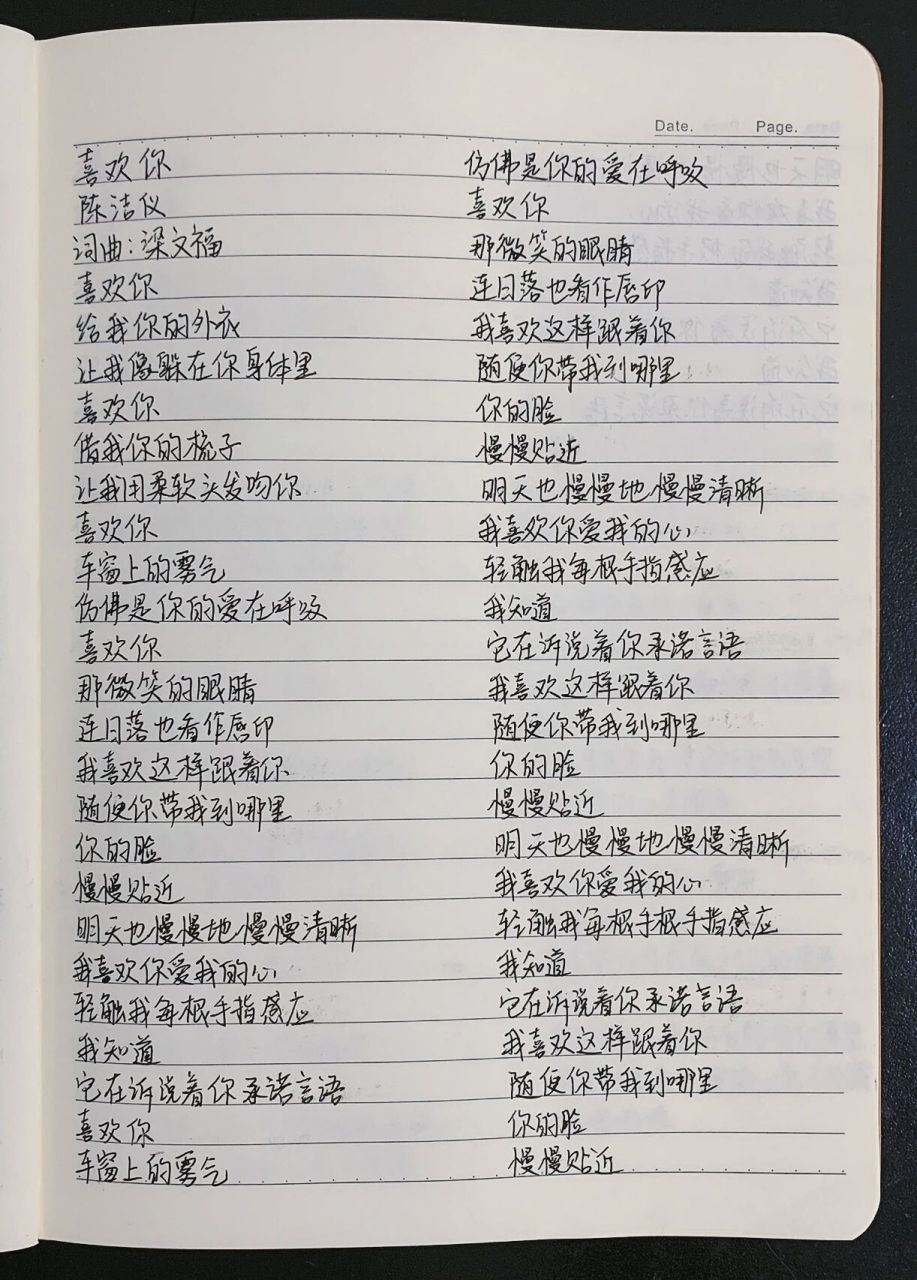 Date.
Page.
喜欢你
陈洁仪
词曲:梁文福
喜欢你
给我你的外衣
让我像躲在你身体里
喜欢你
借我你的梳子
让我用柔软头发吻你
喜欢你
车窗上的雾气
仿佛是你的爱在呼吸
喜欢你
那微笑的眼睛
连日落也看作唇印
我喜欢这样跟着你
随便你带我到哪里
你的脸
慢慢贴近
明天也慢慢地慢慢清晰
我喜欢你爱我的心
轻触我每根手指感应
我知道
它在诉说着你承诺言语
喜欢你
车窗上的雾气
仿佛是你的爱在呼吸
喜欢你
那微笑的眼睛
连日落也看作唇印
我喜欢这样跟着你
随便你带我到哪里
你的脸
慢慢贴近
明天也慢慢地慢慢清晰
我喜欢你爱我的心
轻触我每根手指感应
我知道
它在诉说着你承诺言语
我喜欢这样跟着你
随便你带我到哪里
你的脸
慢慢贴近
明天也慢慢地慢慢清晰
我喜欢你爱我的心
轻触我每根手根手指感应
我知道
它在诉说着你承诺言语
我喜欢这样跟着你
随便你带我到哪里
你的脸
慢慢贴近